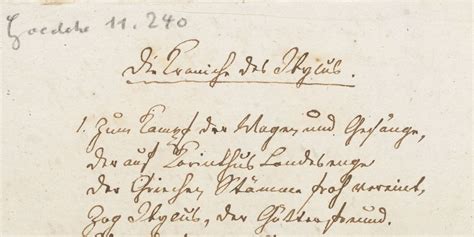 Goedeke 11. 240
Die Kraniche des Ibycus.
1. Zum Kampf der Wagen und Gesänge,
der auf Korinthus Landesenge
der Griechen Stämme froh vereint,
Zog Ibycus, der Götterfreund.